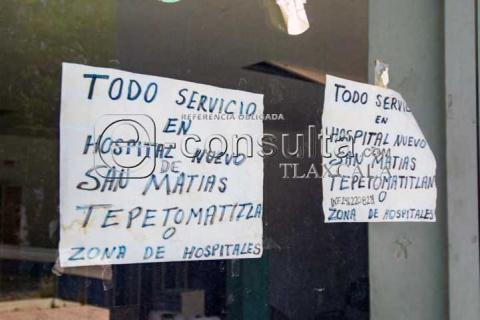 TODO SERVICIO
EN
HOSPITAL NUEVO
DE
SAN MATIAS
TEPETOMATITLA
O
ZONA DE HOSPITALES
TODO SERVIC
EN
HOSPITAL NUEVO
SAN MATIAS
TEPETOMATITLAN
O
ZONA DE HOSPITALES
REFERENCIA OBLIGADA
e-consulta
.COM
TLAXCALA